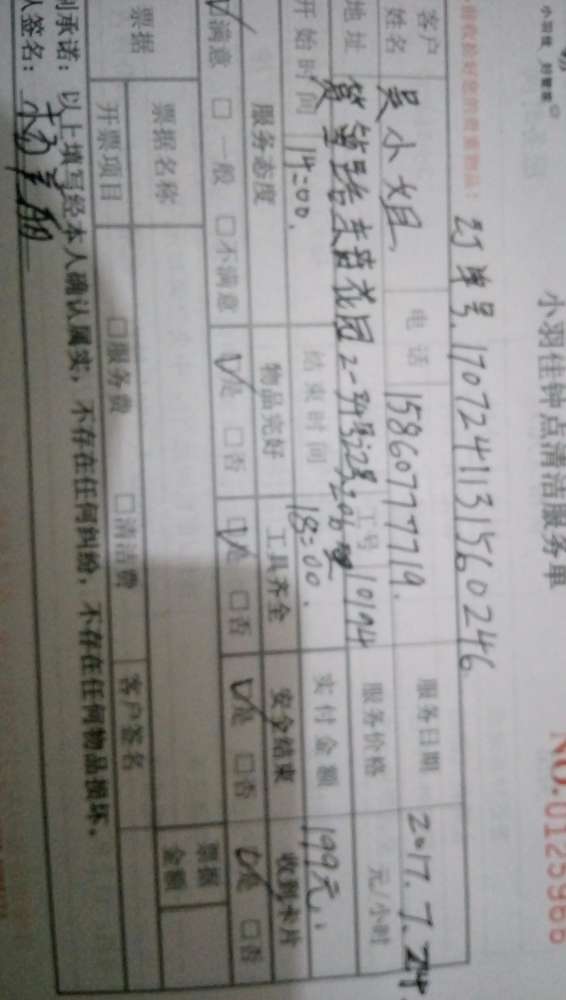 小羽佳 好管家
小羽佳钟点清洁服务单
NO.0125966
请收拾好您的贵重物品!
订单号.1707241131560246
客户姓名 吴小姐 电话 15860777719. 服务日期 2017.7.24
地址 工号 10194 服务价格 元/小时
开始时间 14:00. 结束时间 18:00. 实付金额 199元
服务态度 物品完好 工具齐全 安全结束 收到卡片
满意 □一般 □不满意 是 □否 是 □否 是 □否 是 □否
票据 票据名称 票据金额
开票项目 □服务费 □清洁费 客户签名
承诺:以上填写经本人确认属实,不存在任何纠纷,不存在任何物品损坏。
人签名: